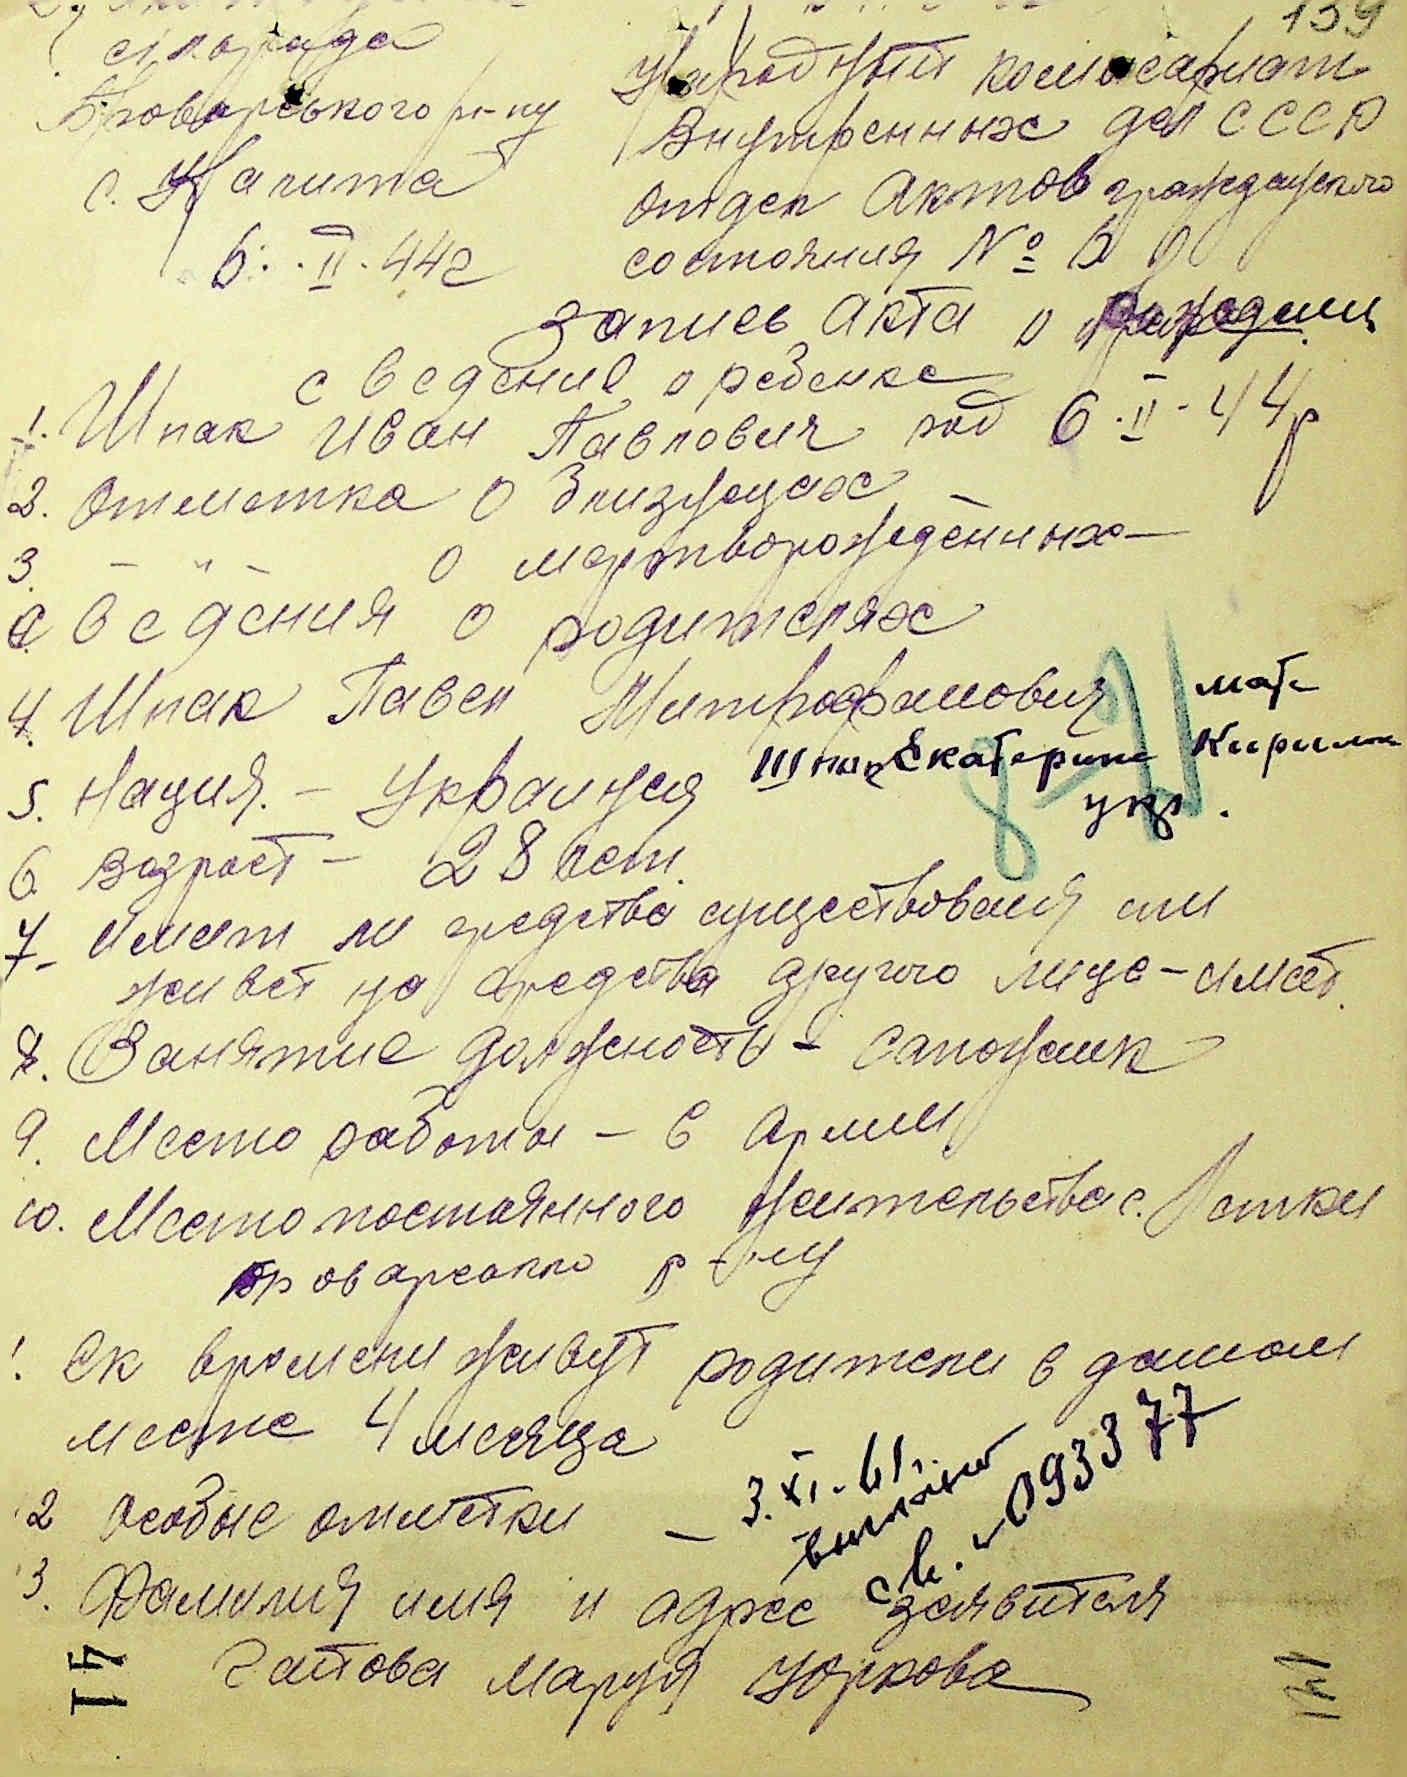 139
сільрада
Броварського р-ну
с. Напита
6. II. 44 г
Народный комисариат
Внутренных дел СССР
отдел Актов гражданского
состояния № 6
Запись Акта о рождении
Сведение о ребенке
1. Шпак Иван Павлович род 6. II. 44 р
2. Отметка о близнецах –
3. – " – о мертворожденных –
Сведения о родителях
4. Шпак Павел Митрофанович
мать
Шпак Екатерина Кирилов
укр.
5. Нация. – Украинея
8-
6. возраст – 28 лет.
7. Имеит ли средства существования или
живет на средства другого лица – имеет.
8. Занятие должность – сапожник
9. Место работы – в Армии
10. Место постоянного жительства с. Литки
броварского р-ну
! Ск времени живут родители в данном
месте 4 месяца
2 Особые отметки –
3. XI. 61 г.
св. 093377
3. Фамилия имя и адрес заявителя
Маруся